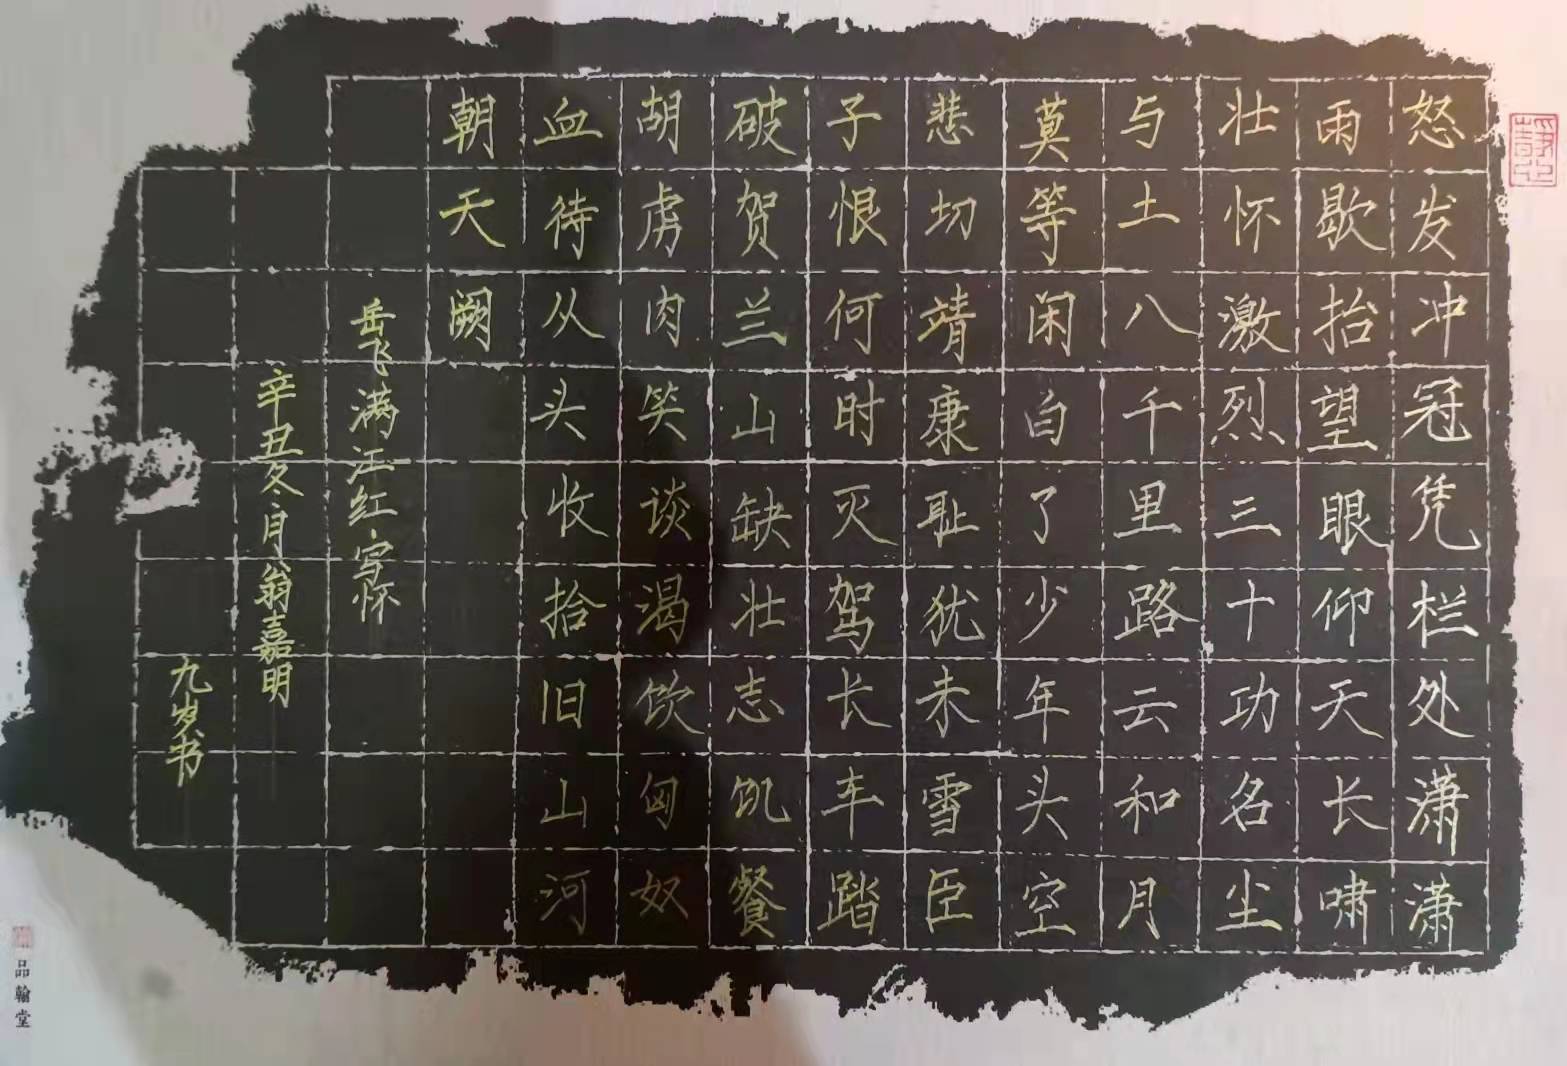 怒发冲冠凭栏处潇潇
雨歇抬望眼仰天长啸
壮怀激烈三十功名尘
与土八千里路云和月
莫等闲白了少年头空
悲切靖康耻犹未雪臣
子恨何时灭驾长车踏
破贺兰山缺壮志饥餐
胡虏肉笑谈渴饮匈奴
血待从头收拾旧山河
朝天阙
岳飞满江红·写怀
辛丑冬月翁嘉明
九岁书
品翰堂